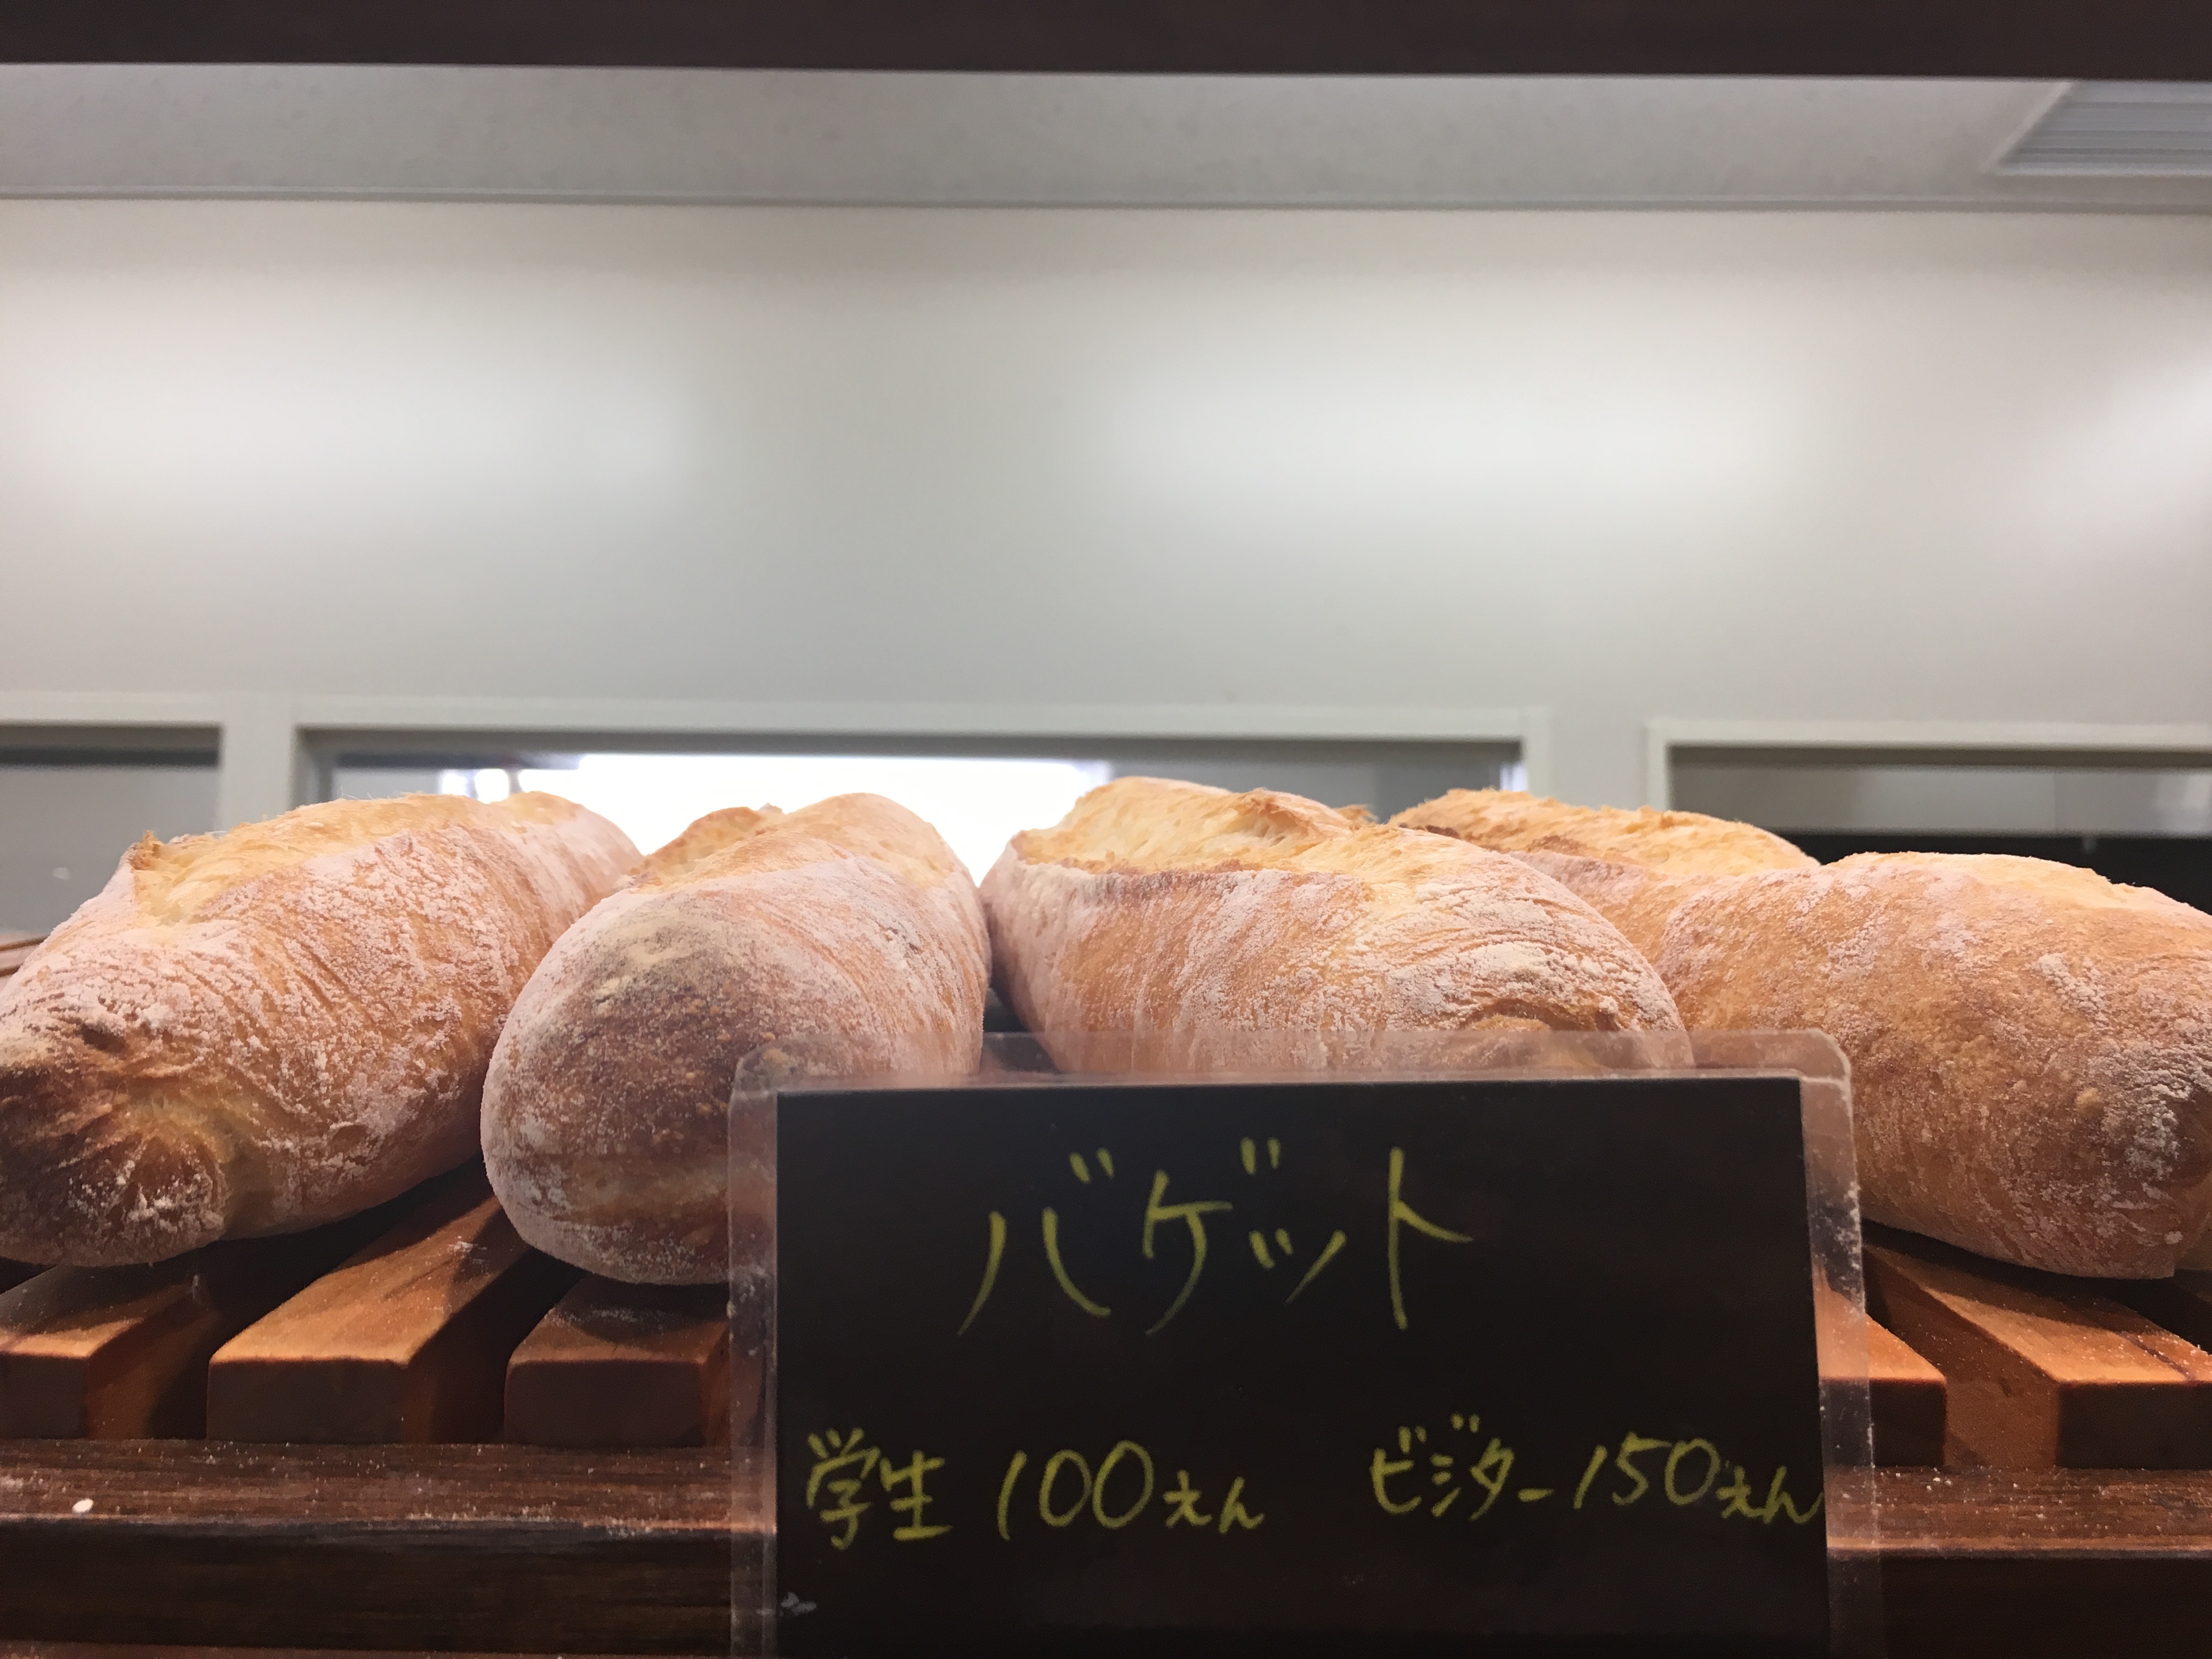 バゲット
学生 100えん ビジター 150えん